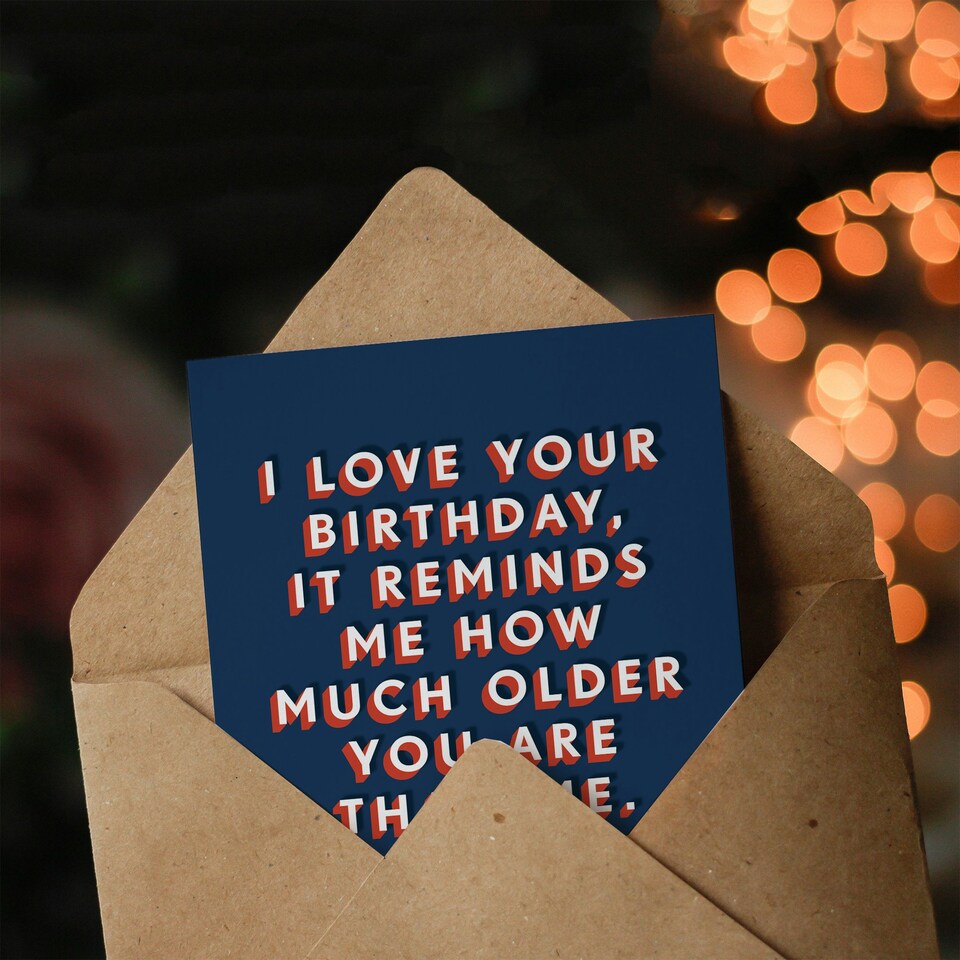 I LOVE YOUR
BIRTHDAY,
IT REMINDS
ME HOW
MUCH OLDER
YOU ARE